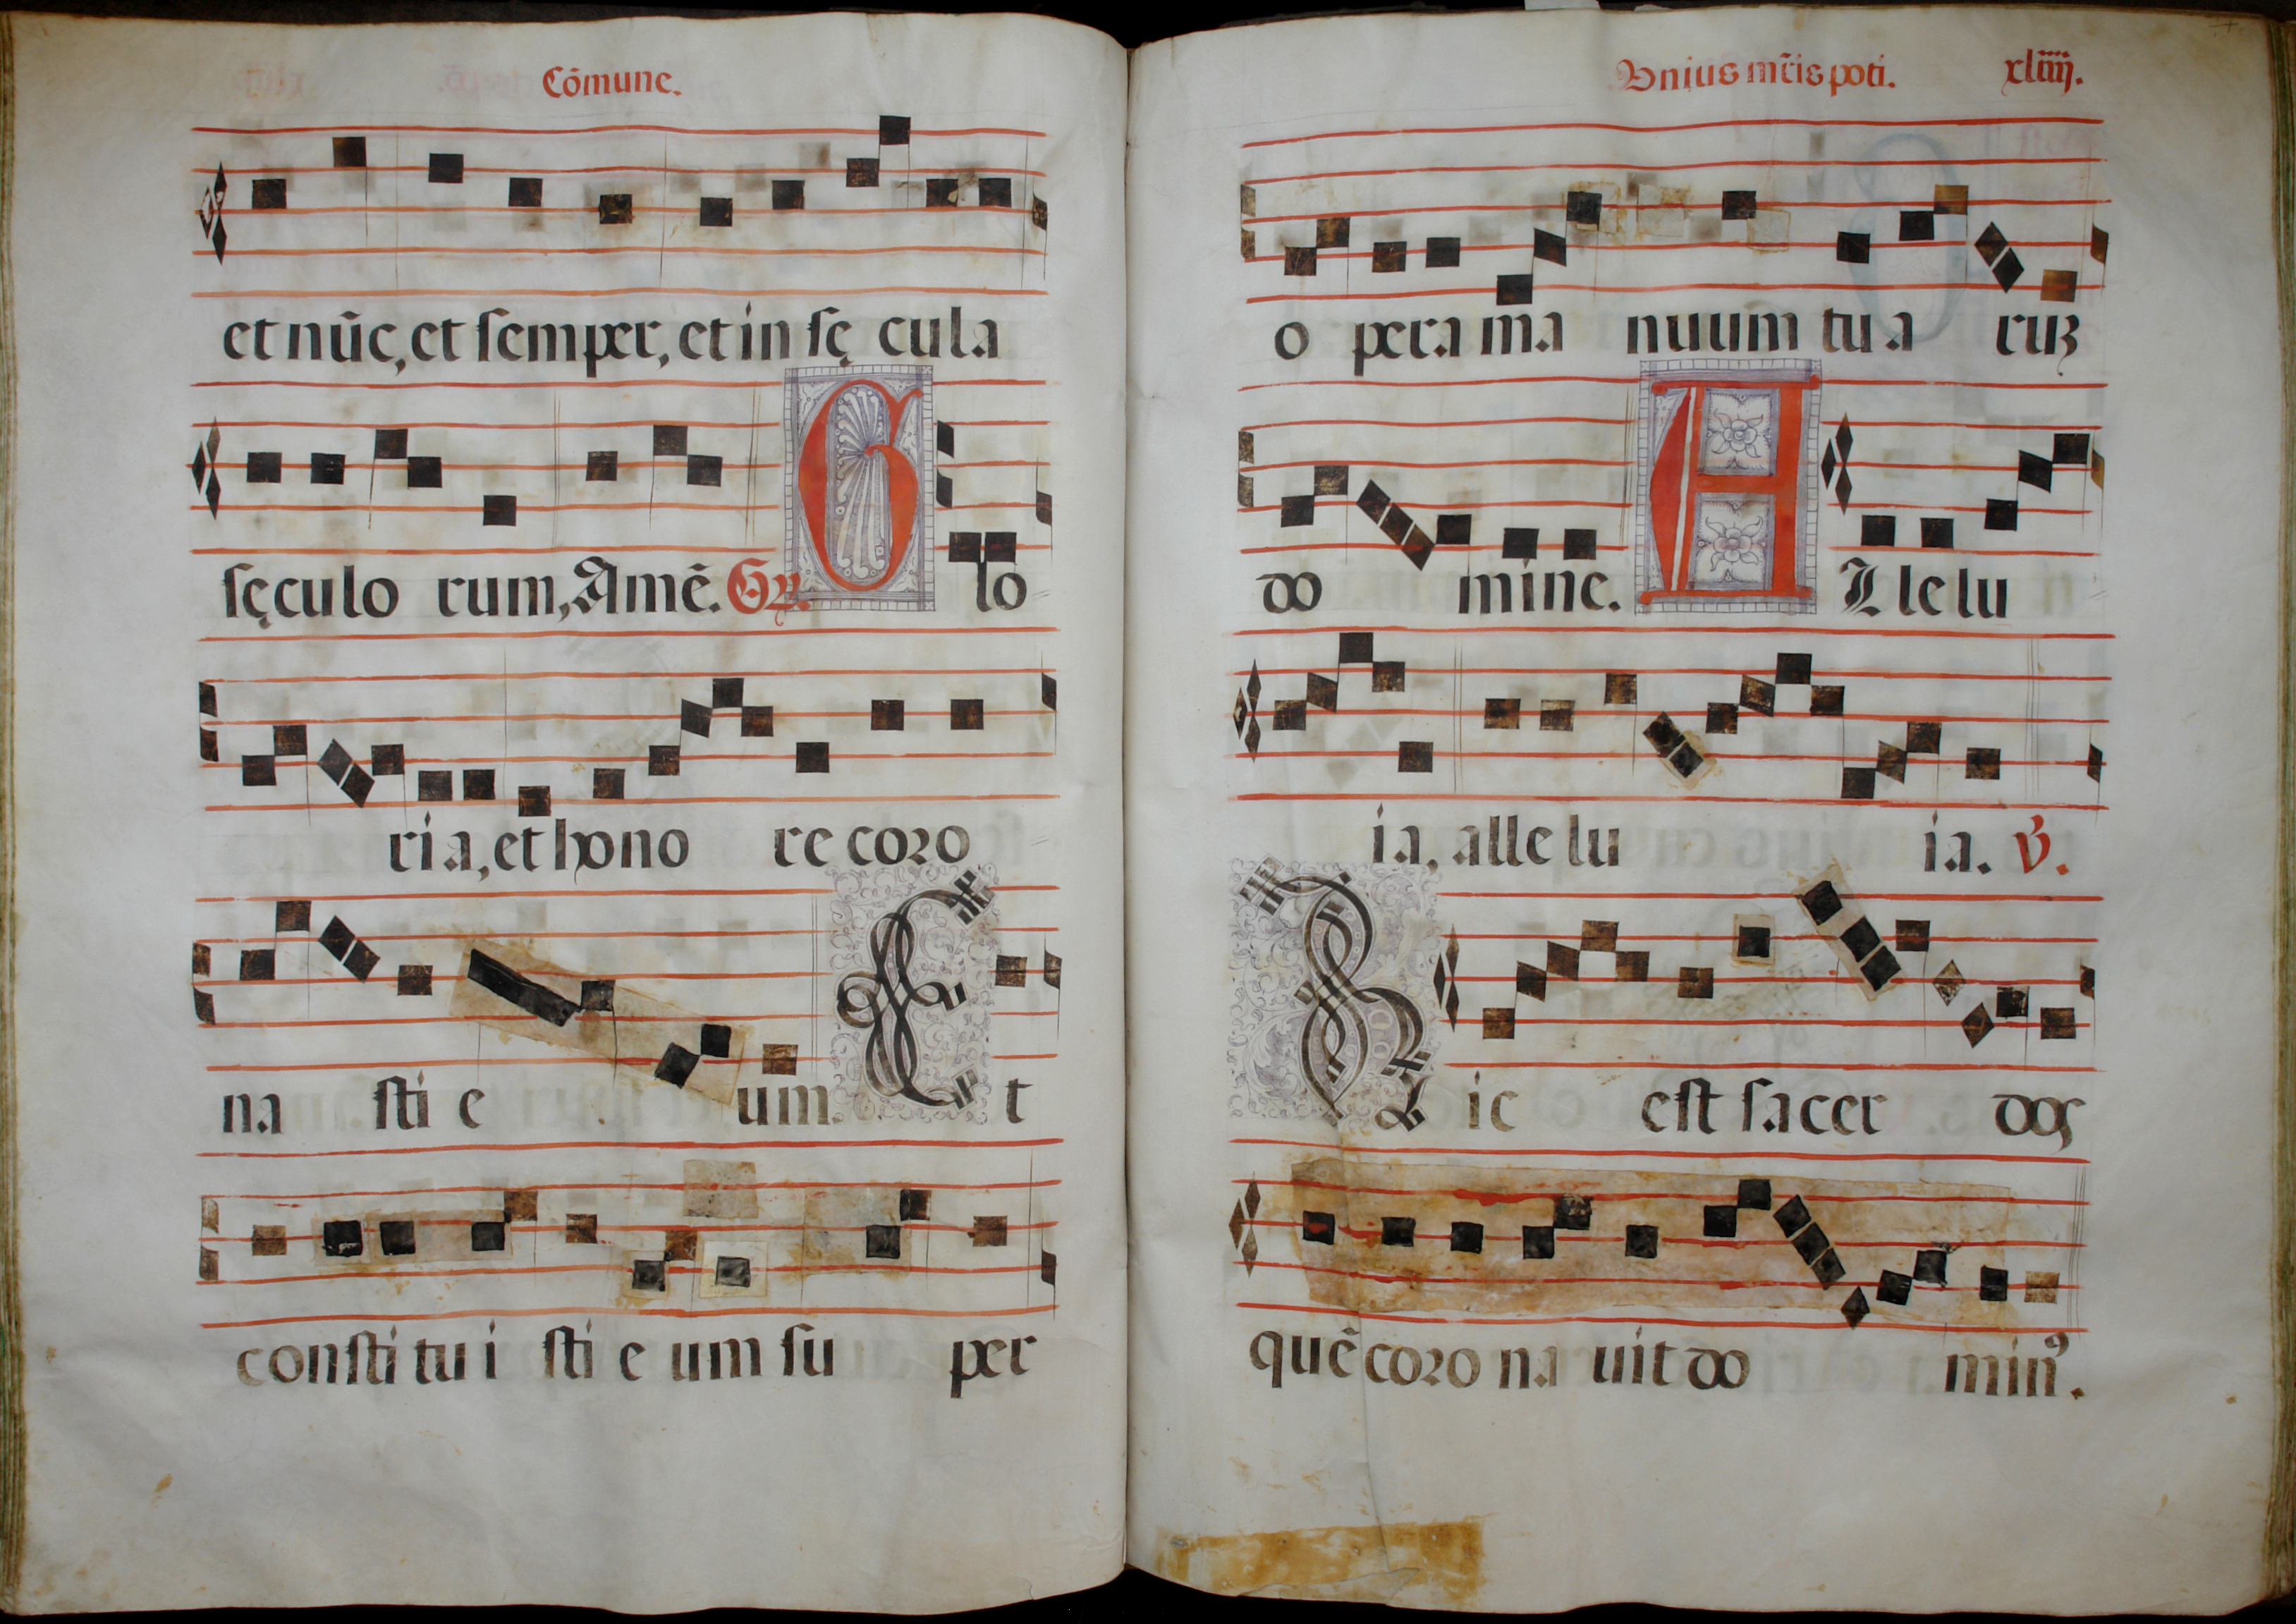 Cõmune.
et nũc, et ſemper, et in ſę cula
ſęculo rum, Amẽ. Gr. G lo
ria, et hono re coro
na ſti e um. E t
conſti tu i ſti e um ſu per
Vnius mr̃is poti. xliiij.
o pera ma nuum tu a ruꝫ
do mine. A Lle lu
ia, alle lu ia. ℣.
H ic eſt ſa cer dos
quẽ coro na uit do minꝰ.